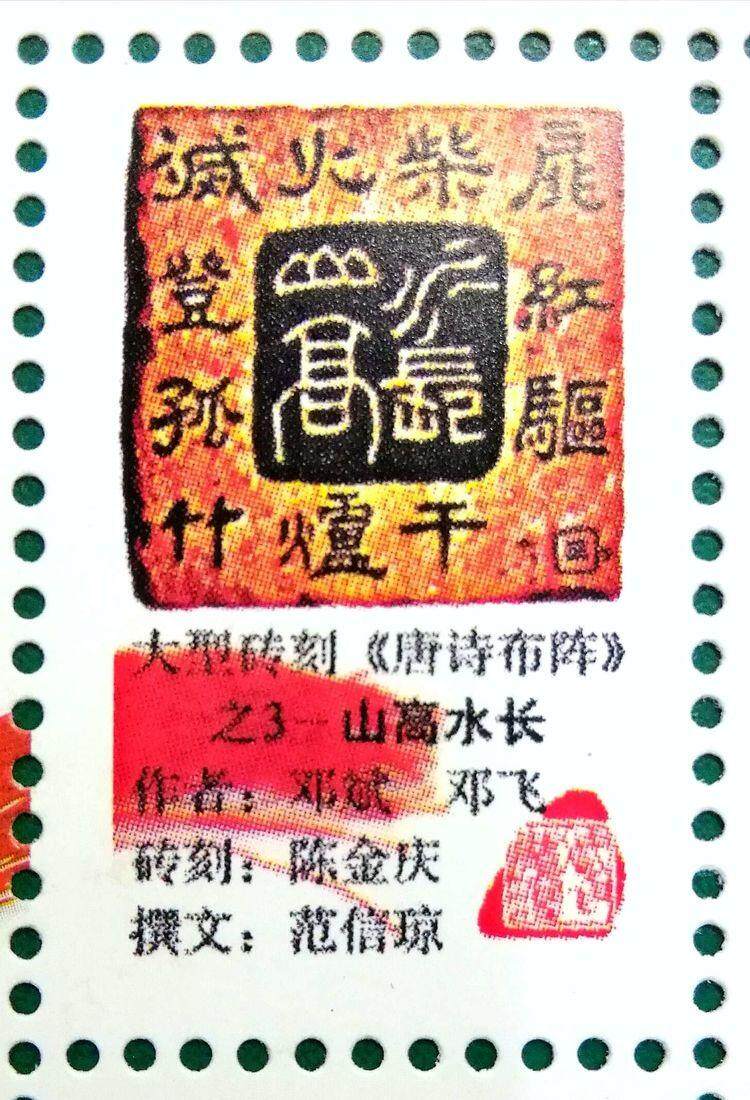 滅火柴扉
登 山高 水長 紅
孤 驅
竹爐干
大型砖刻《唐诗布阵》
之3—山高水长
作者：邓斌 邓飞
砖刻：陈金庆
撰文：范信琼